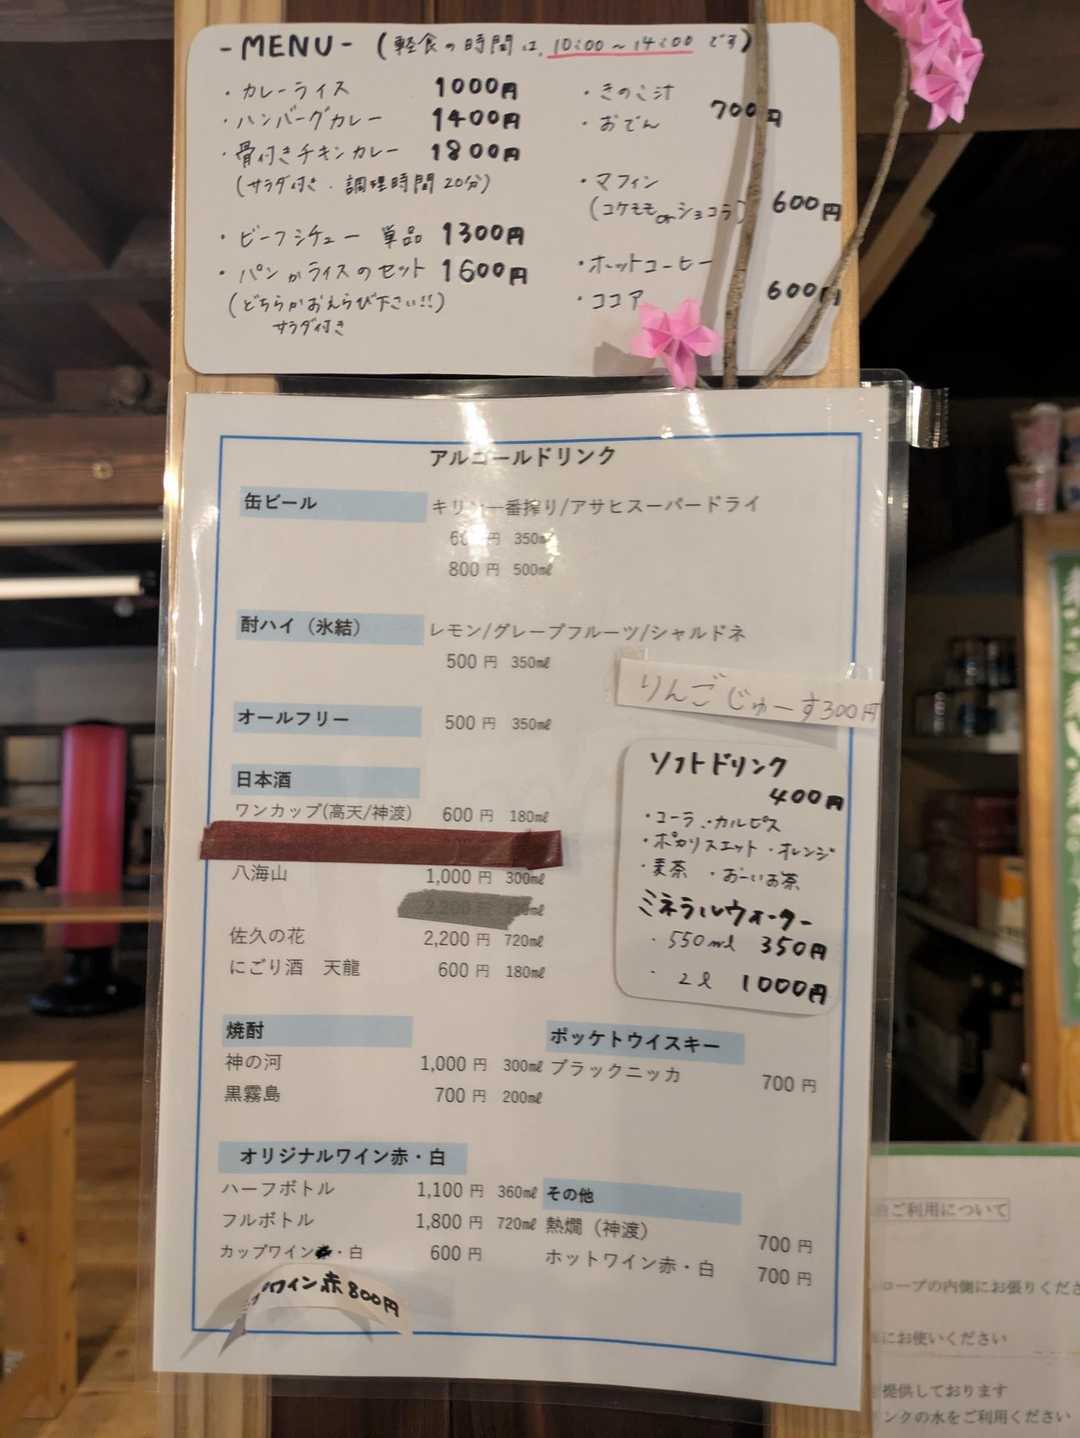 -MENU- (軽食の時間は、10:00~14:00 です)
・カレーライス 1000円
・ハンバーグカレー 1400円
・骨付きチキンカレー 1800円
(サラダ付き・調理時間20分)
・ビーフシチュー 単品 1300円
・パンかライスのセット 1600円
(どちらかおえらび下さい!!)
サラダ付き
・きのこ汁
・おでん 700円
・マフィン
(コケモモorショコラ) 600円
・ホットコーヒー
・ココア 600円
アルコールドリンク
缶ビール キリン一番搾り/アサヒスーパードライ
円 350㎖
800 円 500㎖
酎ハイ（氷結） レモン/グレープフルーツ/シャルドネ
500 円 350㎖
りんごじゅーす300円
オールフリー 500 円 350㎖
日本酒
ワンカップ(高天/神渡) 600 円 180㎖
八海山 1,000 円 300㎖
佐久の花 2,200 円 720㎖
にごり酒 天龍 600 円 180㎖
ソフトドリンク
400円
・コーラ ・カルピス
・ポカリスエット ・オレンジ
・麦茶 ・おーいお茶
ミネラルウォーター
・550ml 350円
・2l 1000円
焼酎
神の河 1,000 円 300㎖
黒霧島 700 円 200㎖
ポッケトウイスキー
ブラックニッカ 700 円
オリジナルワイン赤・白
ハーフボトル 1,100 円 360㎖
フルボトル 1,800 円 720㎖
カップワイン ・白 600 円
ワイン赤800円
その他
熱燗（神渡） 700 円
ホットワイン赤・白 700 円
ご利用について
ロープの内側にお張りくださ
にお使いください
提供しております
ンクの水をご利用ください